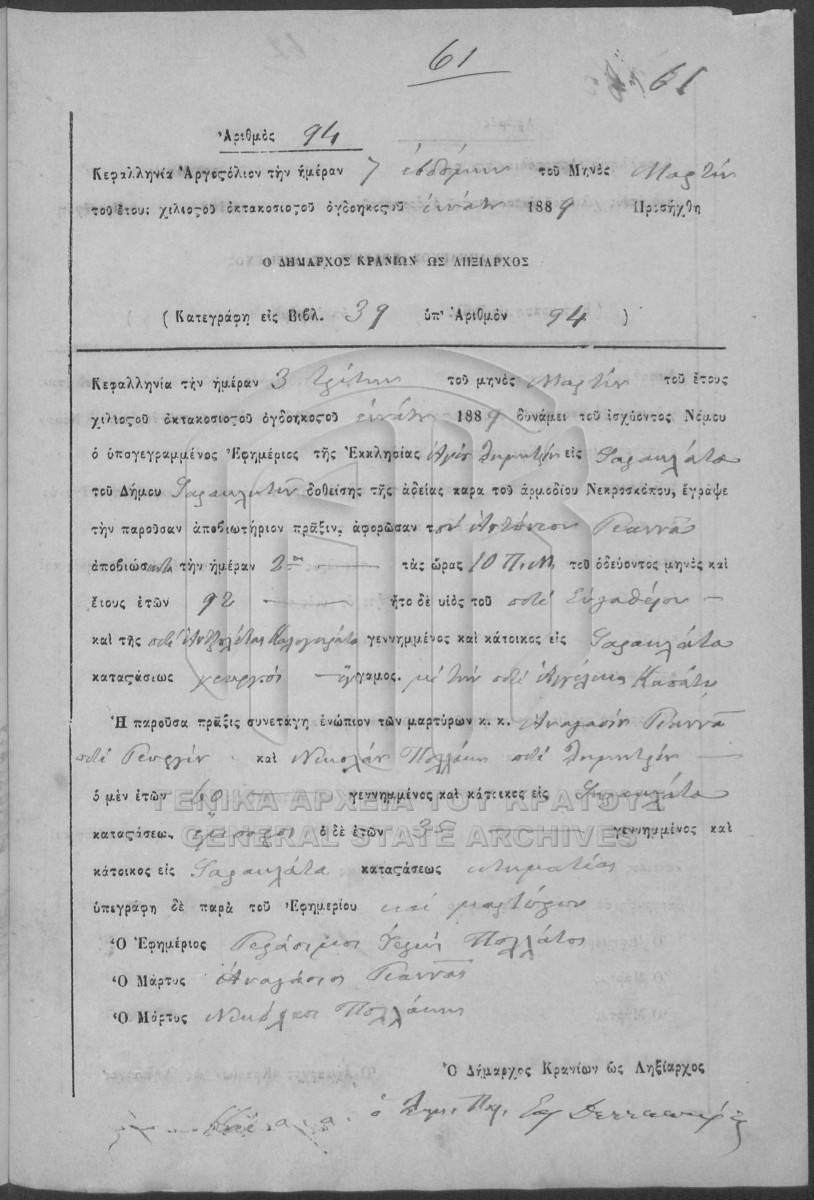 61
61
Ἀριθμὸς 94
Κεφαλληνία Ἀργοστόλιον τὴν ἡμέραν 7 ἑβδόμην τοῦ Μηνὸς Μαρτίου
τοῦ ἔτους χιλιοςοῦ ὀκτακοσιοςοῦ ὀγδοηκοςοῦ ἐννάτου 1889 Προσήχθη
Ο ΔΗΜΑΡΧΟΣ ΚΡΑΝΙΩΝ ΩΣ ΛΗΞΙΑΡΧΟΣ
(Κατεγράφη εἰς Βιβλ. 39 ὑπ' Ἀριθμὸν 94)
Κεφαλληνία τὴν ἡμέραν 3 τρίτην τοῦ μηνὸς Μαρτίου τοῦ ἔτους
χιλιοςοῦ ὀκτακοσιοςοῦ ὀγδοηκοςοῦ ἐννάτου 1889 δυνάμει τοῦ ἰσχύοντος Νόμου
ὁ ὑπογεγραμμένος Ἐφημέριος τῆς Ἐκκλησίας Ἁγίου Δημητρίου εἰς Φαρακλάτα
τοῦ Δήμου δοθείσης τῆς ἀδείας παρα τοῦ ἁρμοδίου Νεκροσκόπου, ἔγραψε
τὴν παροῦσαν ἀποβιωτήριον πρᾶξιν, ἀφορῶσαν τὸν Ἀντώνιον Γιαννᾶν
ἀποβιώσαντα τὴν ἡμέραν 2αν τὰς ὥρας 10 Π.Μ. τοῦ ὁδεύοντος μηνὸς καὶ
ἔτους ἐτῶν 92 ἦτο δὲ υἱὸς τοῦ ποτέ
καὶ τῆς ποτέ γεννημμένος καὶ κάτοικος εἰς Φαρακλάτα
καταςάσεως γεωργός ἔγγαμος. μὲ τὴν ποτέ Ἀγγέλικα
Ἡ παροῦσα πρᾶξις συνετάγη ἐνώπιον τῶν μαρτύρων κ. κ. Ἀναστασίου Γιαννᾶ
ποτέ Γεωργίου καὶ Νικολάου Πολλάκη ποτέ Δημητρίου
ὁ μὲν ἐτῶν 60 γεννημμένος καὶ κάτοικος εἰς Φαρακλάτα
καταςάσεως ὁ δὲ ἐτῶν γεννημμένος καὶ
κάτοικος εἰς Φαρακλάτα καταςάσεως κτηματίας
ὑπεγράφη δὲ παρὰ τοῦ Ἐφημερίου καὶ μαρτύρων
Ὁ Ἐφημέριος Γεράσιμος Ἱερεύς Πολλάτος
Ὁ Μάρτυς Ἀναστάσιος Γιαννᾶς
Ὁ Μάρτυς Νικόλαος Πολλάκης
Ὁ Δήμαρχος Κρανίων ὡς Ληξίαρχος
ὁ
ΓΕΝΙΚΑ ΑΡΧΕΙΑ ΤΟΥ ΚΡΑΤΟΥΣ
GENERAL STATE ARCHIVES